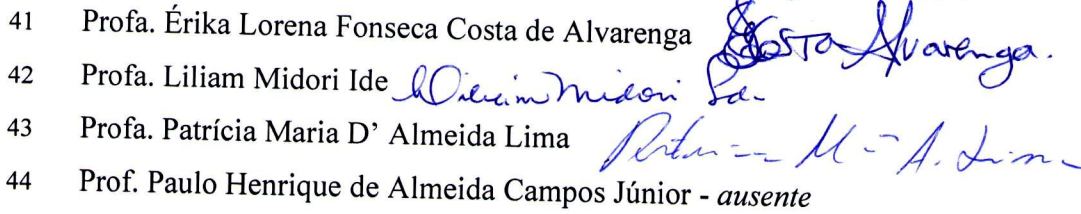 41 Profa. Érika Lorena Fonseca Costa de Alvarenga Costa Alvarenga.
42 Profa. Liliam Midori Ide Liliam Midori Ide
43 Profa. Patrícia Maria D' Almeida Lima M A. Lima
44 Prof. Paulo Henrique de Almeida Campos Júnior - ausente